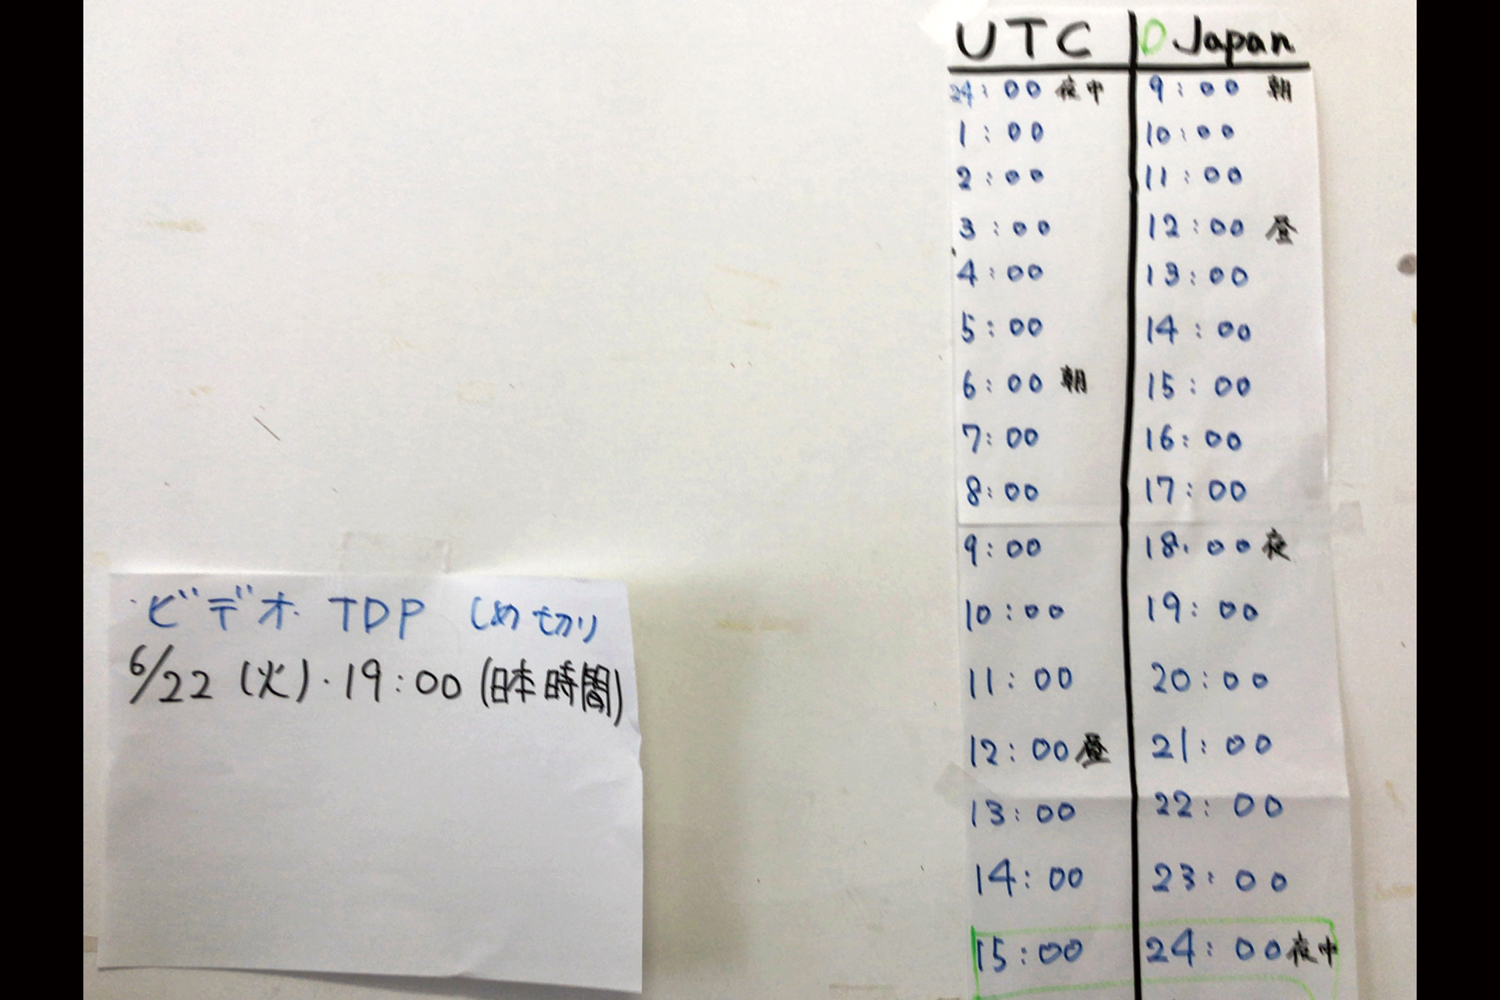 ビデオ TDP しめ切り
6/22 (火)・19:00 (日本時間)
UTC Japan
24:00 夜中 9:00 朝
1:00 10:00
2:00 11:00
3:00 12:00 昼
4:00 13:00
5:00 14:00
6:00 朝 15:00
7:00 16:00
8:00 17:00
9:00 18:00 夜
10:00 19:00
11:00 20:00
12:00 昼 21:00
13:00 22:00
14:00 23:00
15:00 24:00 夜中